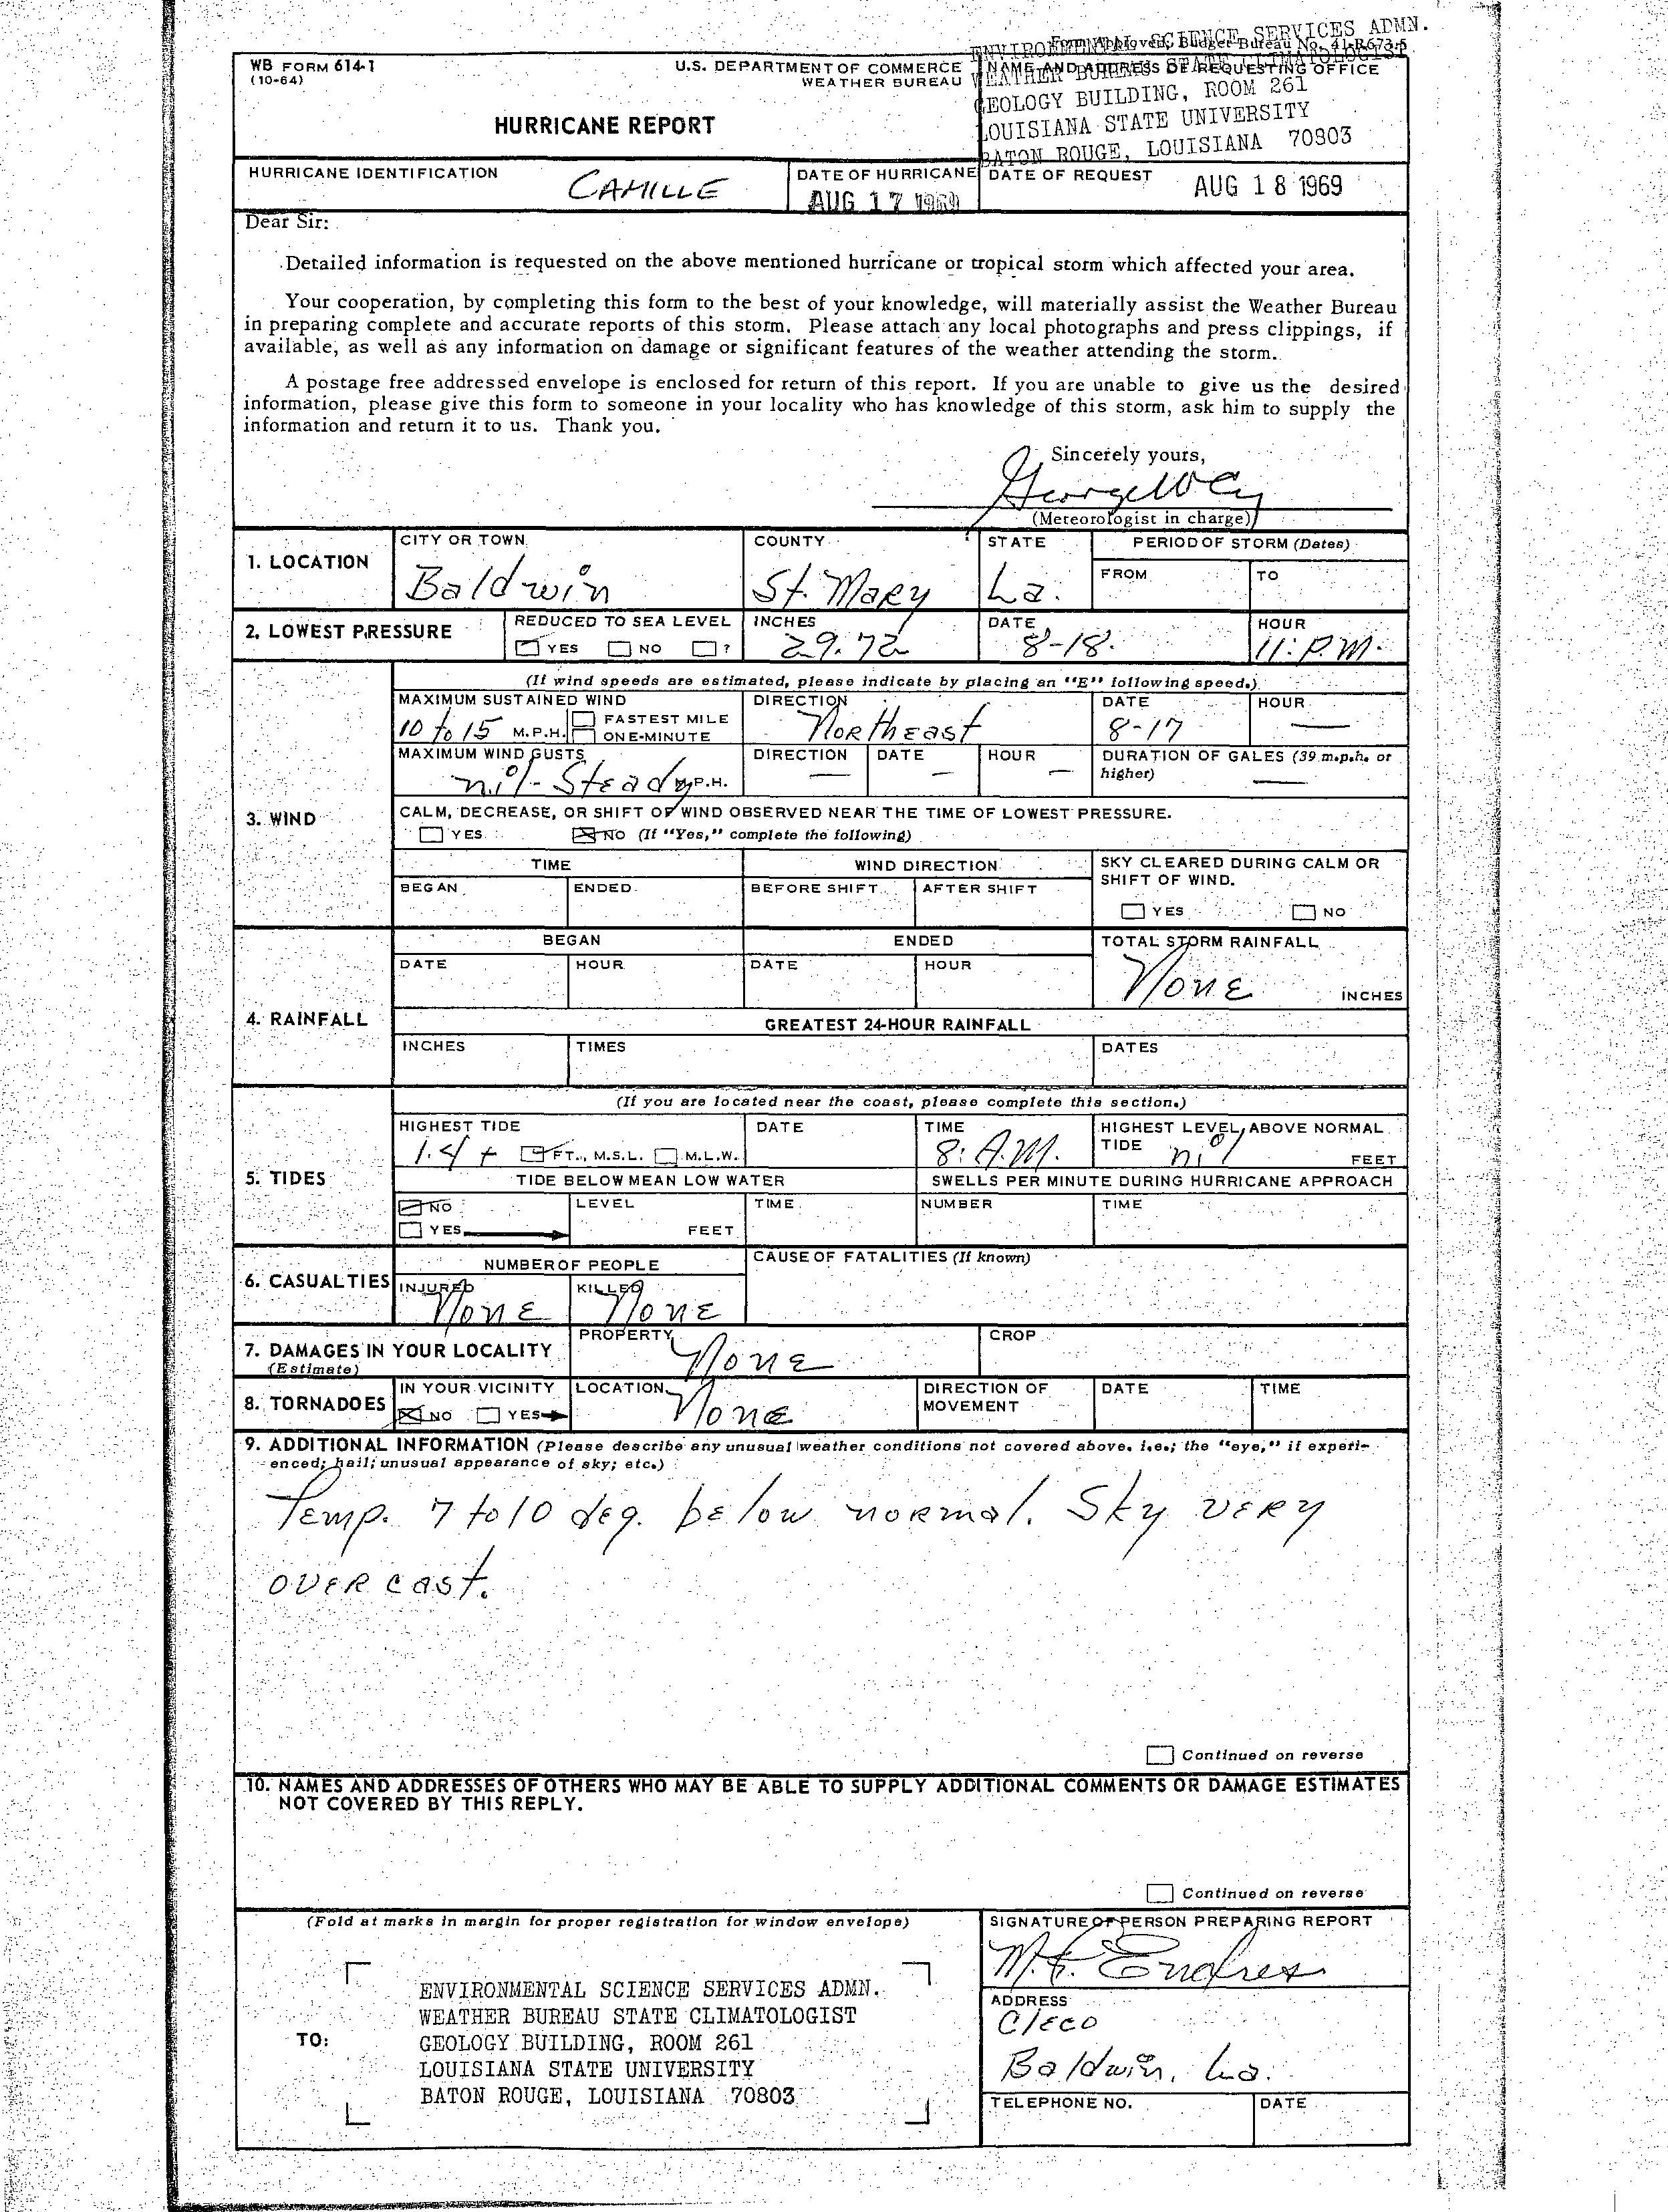 WB FORM 614-1
(10-64)
U.S. DEPARTMENT OF COMMERCE
WEATHER BUREAU
HURRICANE REPORT
Form Approved; Budget Bureau No. 41-R673.5
NAME AND ADDRESS OF REQUESTING OFFICE
ENVIRONMENTAL SCIENCE SERVICES ADMN.
WEATHER BUREAU STATE CLIMATOLOGIST
GEOLOGY BUILDING, ROOM 261
LOUISIANA STATE UNIVERSITY
BATON ROUGE, LOUISIANA 70803
HURRICANE IDENTIFICATION
CAMILLE
DATE OF HURRICANE
AUG 17 1969
DATE OF REQUEST
AUG 18 1969
Dear Sir:
Detailed information is requested on the above mentioned hurricane or tropical storm which affected your area.
Your cooperation, by completing this form to the best of your knowledge, will materially assist the Weather Bureau
in preparing complete and accurate reports of this storm. Please attach any local photographs and press clippings, if
available, as well as any information on damage or significant features of the weather attending the storm.
A postage free addressed envelope is enclosed for return of this report. If you are unable to give us the desired
information, please give this form to someone in your locality who has knowledge of this storm, ask him to supply the
information and return it to us. Thank you.
Sincerely yours,
(Meteorologist in charge)
1. LOCATION
CITY OR TOWN
Baldwin
COUNTY
St. Mary
STATE
La.
PERIOD OF STORM (Dates)
FROM
TO
2. LOWEST PRESSURE
REDUCED TO SEA LEVEL
YES NO ?
INCHES
29.72
DATE
8-18.
HOUR
11: P.M.
3. WIND
(If wind speeds are estimated, please indicate by placing an "E" following speed.)
MAXIMUM SUSTAINED WIND
10 to 15 M.P.H.
FASTEST MILE
ONE-MINUTE
DIRECTION
Northeast
DATE
8-17
HOUR
—
MAXIMUM WIND GUSTS
nil - Steady M.P.H.
DIRECTION
—
DATE
—
HOUR
—
DURATION OF GALES (39 m.p.h. or
higher)
—
CALM, DECREASE, OR SHIFT OF WIND OBSERVED NEAR THE TIME OF LOWEST PRESSURE.
YES NO (If "Yes," complete the following)
TIME
WIND DIRECTION
SKY CLEARED DURING CALM OR
SHIFT OF WIND.
BEGAN
ENDED
BEFORE SHIFT
AFTER SHIFT
YES NO
4. RAINFALL
BEGAN
ENDED
TOTAL STORM RAINFALL
DATE
HOUR
DATE
HOUR
None INCHES
GREATEST 24-HOUR RAINFALL
INCHES
TIMES
DATES
5. TIDES
(If you are located near the coast, please complete this section.)
HIGHEST TIDE
1.4 + FT., M.S.L. M.L.W.
DATE
TIME
8: A.M.
HIGHEST LEVEL ABOVE NORMAL
TIDE
nil FEET
TIDE BELOW MEAN LOW WATER
SWELLS PER MINUTE DURING HURRICANE APPROACH
NO
YES
LEVEL
FEET
TIME
NUMBER
TIME
6. CASUALTIES
NUMBER OF PEOPLE
CAUSE OF FATALITIES (If known)
INJURED
None
KILLED
None
7. DAMAGES IN YOUR LOCALITY
(Estimate)
PROPERTY
None
CROP
8. TORNADOES
IN YOUR VICINITY
NO YES
LOCATION
None
DIRECTION OF
MOVEMENT
DATE
TIME
9. ADDITIONAL INFORMATION (Please describe any unusual weather conditions not covered above. i.e.; the "eye," if experi-
enced; hail; unusual appearance of sky; etc.)
Temp. 7 to 10 deg. below normal. Sky very
overcast.
Continued on reverse
10. NAMES AND ADDRESSES OF OTHERS WHO MAY BE ABLE TO SUPPLY ADDITIONAL COMMENTS OR DAMAGE ESTIMATES
NOT COVERED BY THIS REPLY.
Continued on reverse
(Fold at marks in margin for proper registration for window envelope)
TO:
ENVIRONMENTAL SCIENCE SERVICES ADMN.
WEATHER BUREAU STATE CLIMATOLOGIST
GEOLOGY BUILDING, ROOM 261
LOUISIANA STATE UNIVERSITY
BATON ROUGE, LOUISIANA 70803
SIGNATURE OF PERSON PREPARING REPORT
Endres
ADDRESS
Cleco
Baldwin, La.
TELEPHONE NO.
DATE